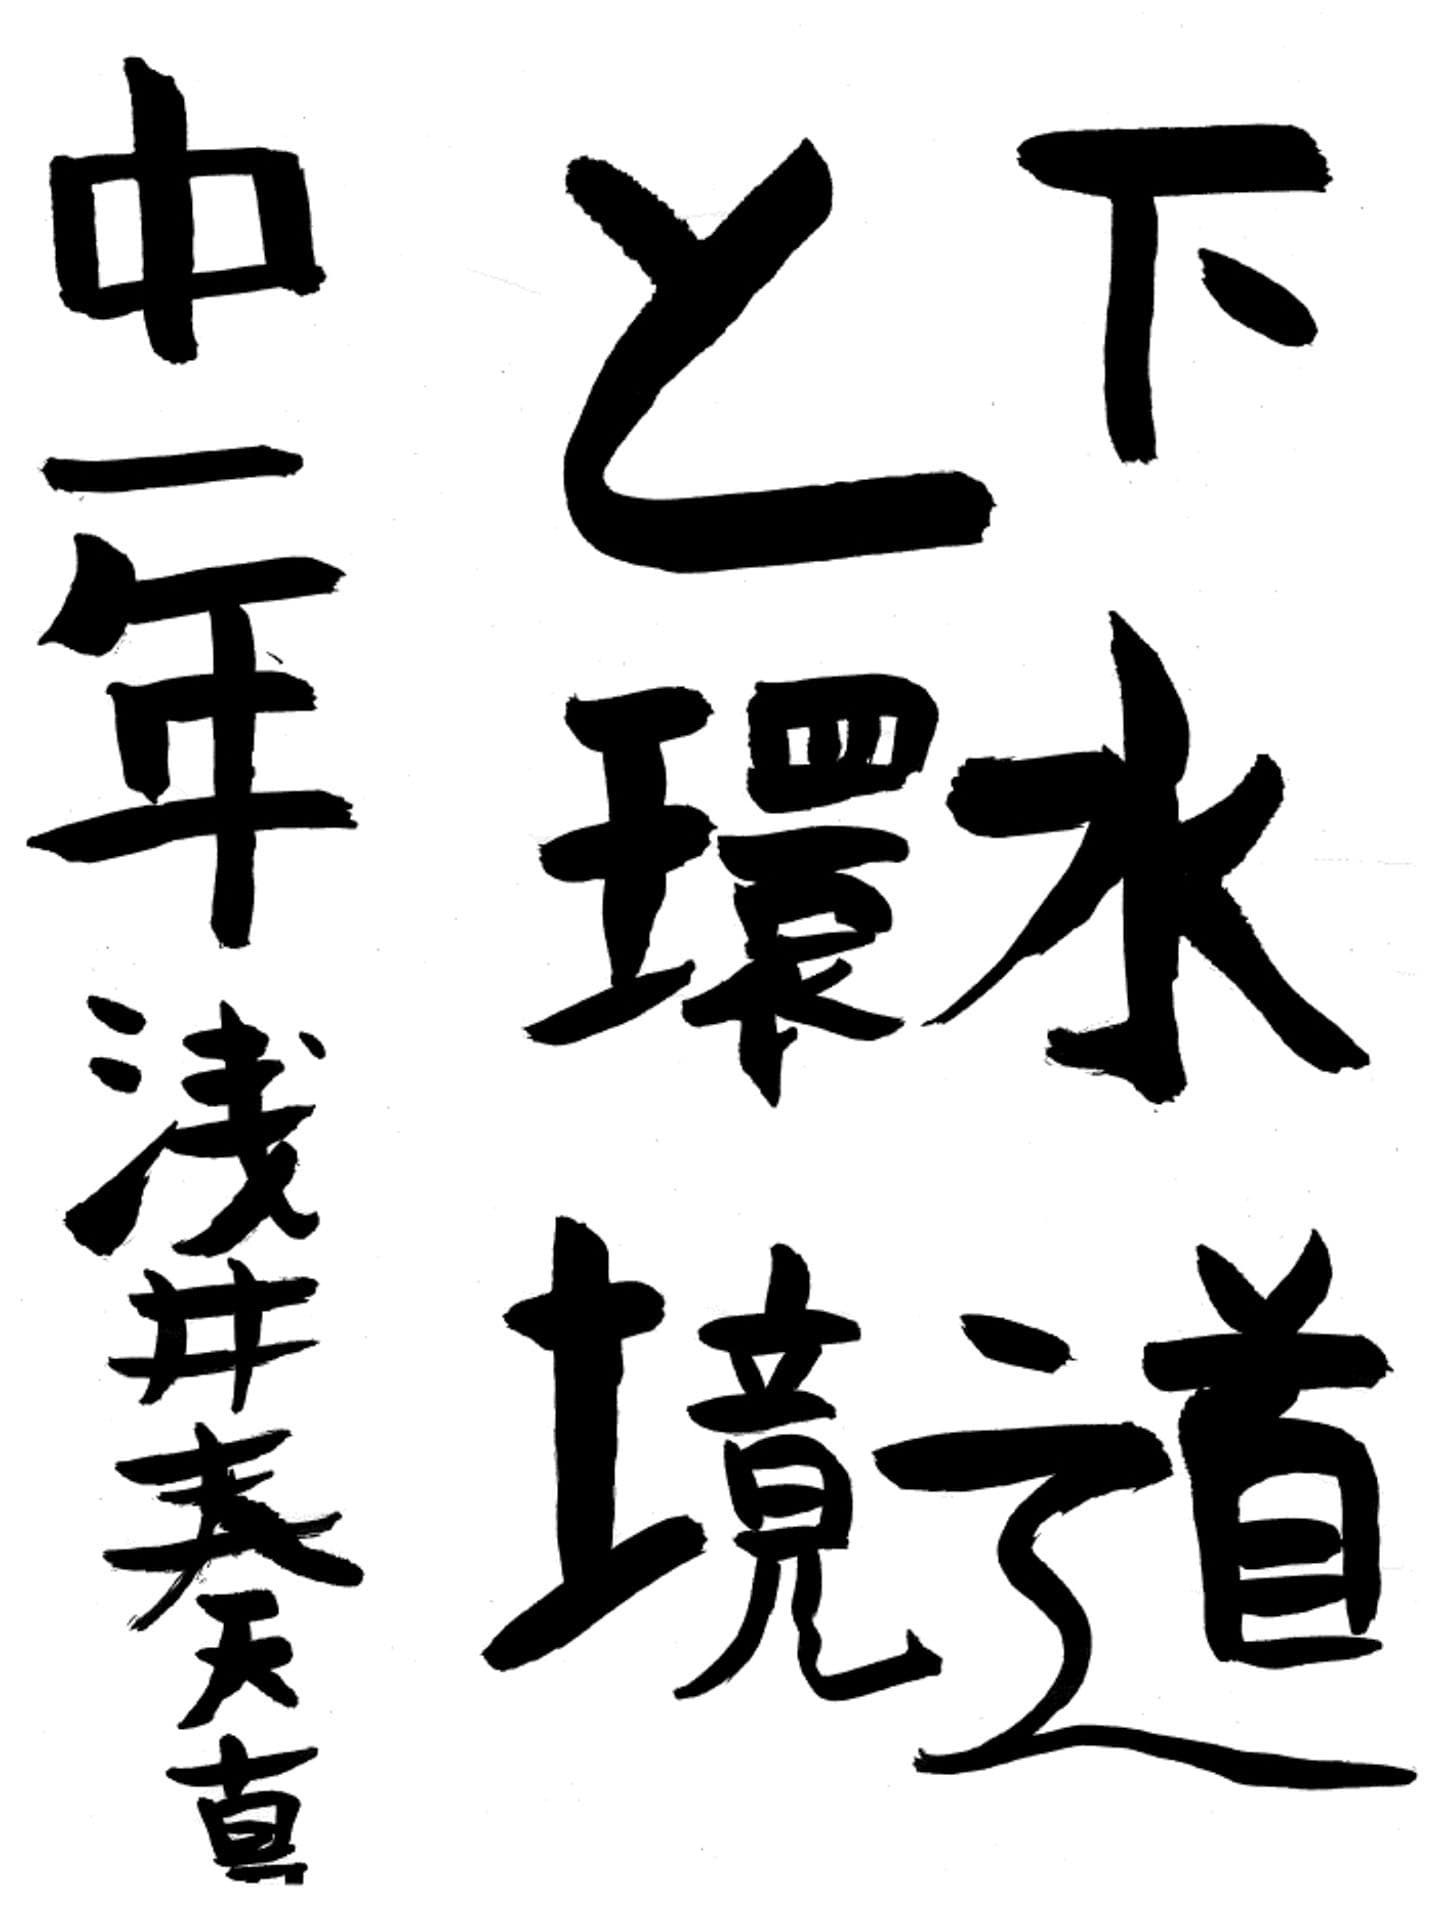 下水道
と環境
中一年 浅井奏真